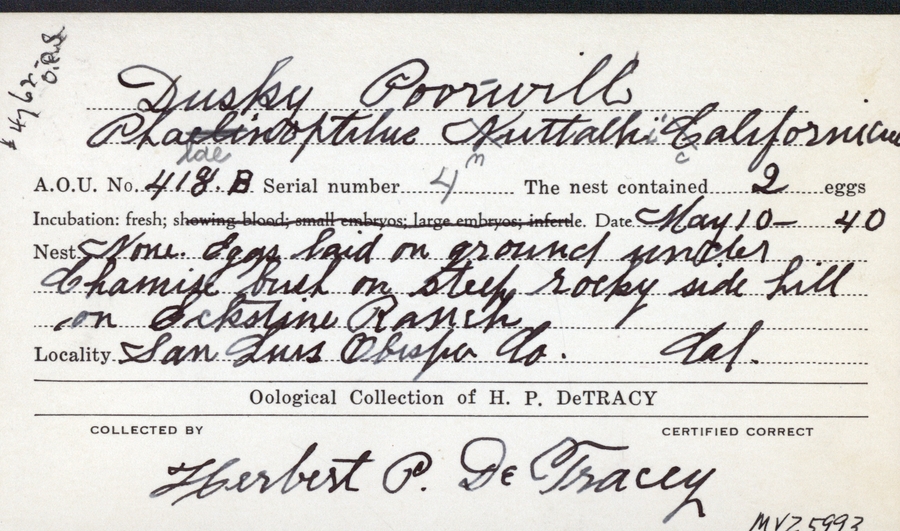 4/62-
Dusky Poorwill
Phalaelinoptilus Nuttallii Californicus
lae n c
A.O.U. No. 418.B Serial number 4 The nest contained 2 eggs
Incubation: fresh; showing blood; small embryos; large embryos; infertile. Date May 10- 40
Nest None. Eggs laid on ground under
Chamise bush on steep rocky side hill
on Eckstine Ranch
Locality San Luis Obispo Co. Cal.
Oological Collection of H. P. DeTRACY
COLLECTED BY CERTIFIED CORRECT
Herbert P. DeTracey
MVZ 5993